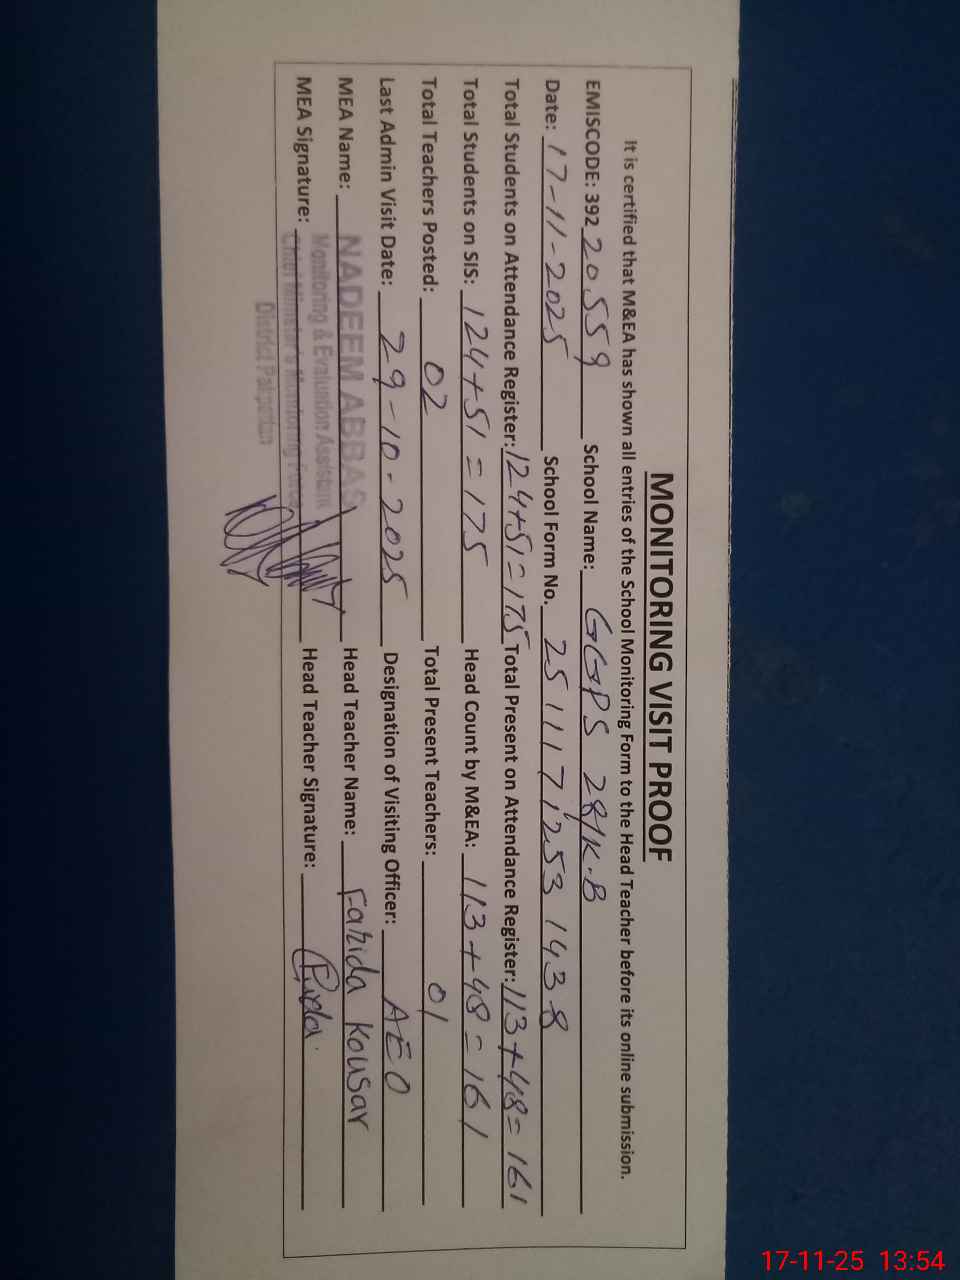 MONITORING VISIT PROOF
It is certified that M&EA has shown all entries of the School Monitoring Form to the Head Teacher before its online submission.
EMISCODE: 392 20559 School Name: GGPS 28/K-B
Date: 17-11-2025 School Form No. 25111712531438
Total Students on Attendance Register: 124+51=175 Total Present on Attendance Register: 113+48=161
Total Students on SIS: 124+51=175 Head Count by M&EA: 113+48=161
Total Teachers Posted: 02 Total Present Teachers: 01
Last Admin Visit Date: 29-10-2025 Designation of Visiting Officer: AEO
MEA Name: NADEEM ABBAS Head Teacher Name: Farida Kousar
Monitoring & Evaluation Assistant
MEA Signature: Chief Minister's Monitoring Force Head Teacher Signature:
District Pakpattan
17-11-25 13:54